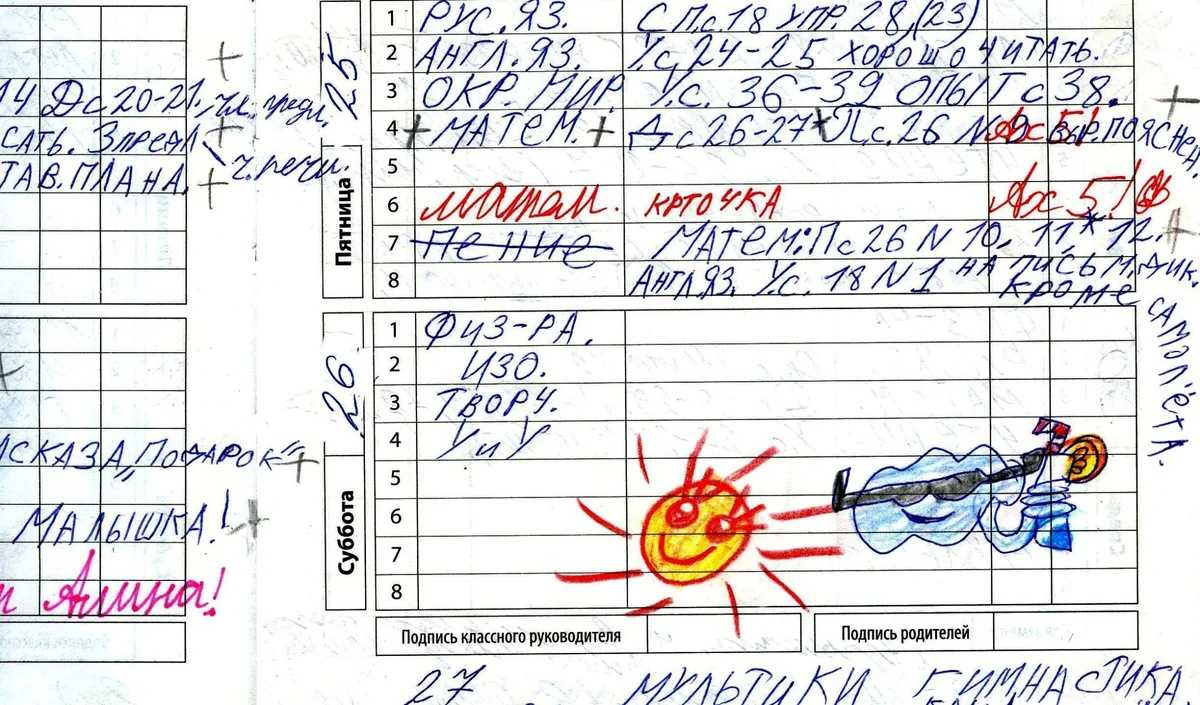 14 Дс20-21. чл. предл.
САТЬ. 3 предл ч. речи.
ТАВ. ПЛАНА.
СКАЗА „ПОДАРОК"
МАЛЫШКА!
Алина!
25
Пятница
1 РУС. ЯЗ. С.П.с.18 УПР. 28,(23)
2 АНГЛ. ЯЗ. У.с.24-25 ХОРОШО ЧИТАТЬ.
3 ОКР. МИР У.с. 36-39 ОПЫТ с 38.
4 + МАТЕМ. + Дс26-27 + П.с.26 N 9
5
6 матем. крточка 5!
7 Пение МАТЕМ: Пс26 N 10, 11,* 12.
8 АНГЛ.ЯЗ. У.с. 18 N1 НА ПИСЬМ. ДИК. КРОМЕ
САМОЛЁТА.
26
Суббота
1 ФИЗ-РА.
2 ИЗО.
3 ТВОРЧ.
4 УиУ
5
6
7
8
Подпись классного руководителя Подпись родителей
27 МУЛЬТИКИ ГИМНАСТИКА